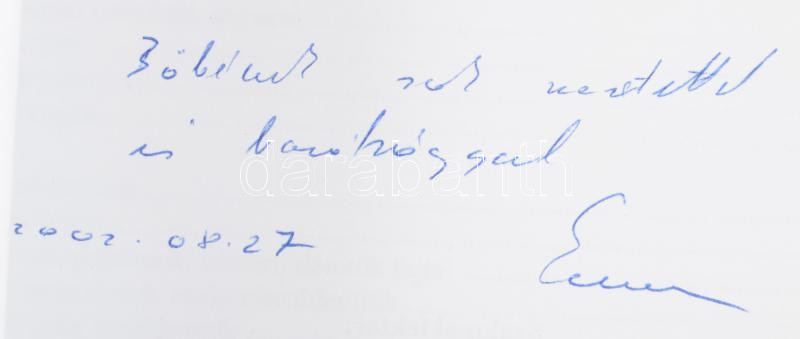 Bőbének sok szeretettel
és barátsággal
darabanth
2002. 08. 27